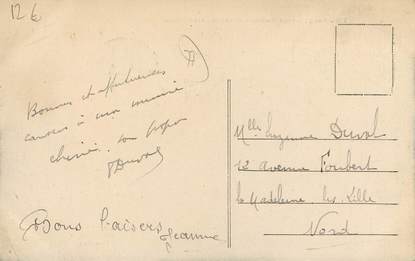 12 €
77
Bonnes et affectueuses
caresses à ma mémé
chérie. ton papa
Duval
Bons baisers Jeanne
Mlle Suzanne Duval
12 Avenue Foubert
La Madeleine les Lille
Nord